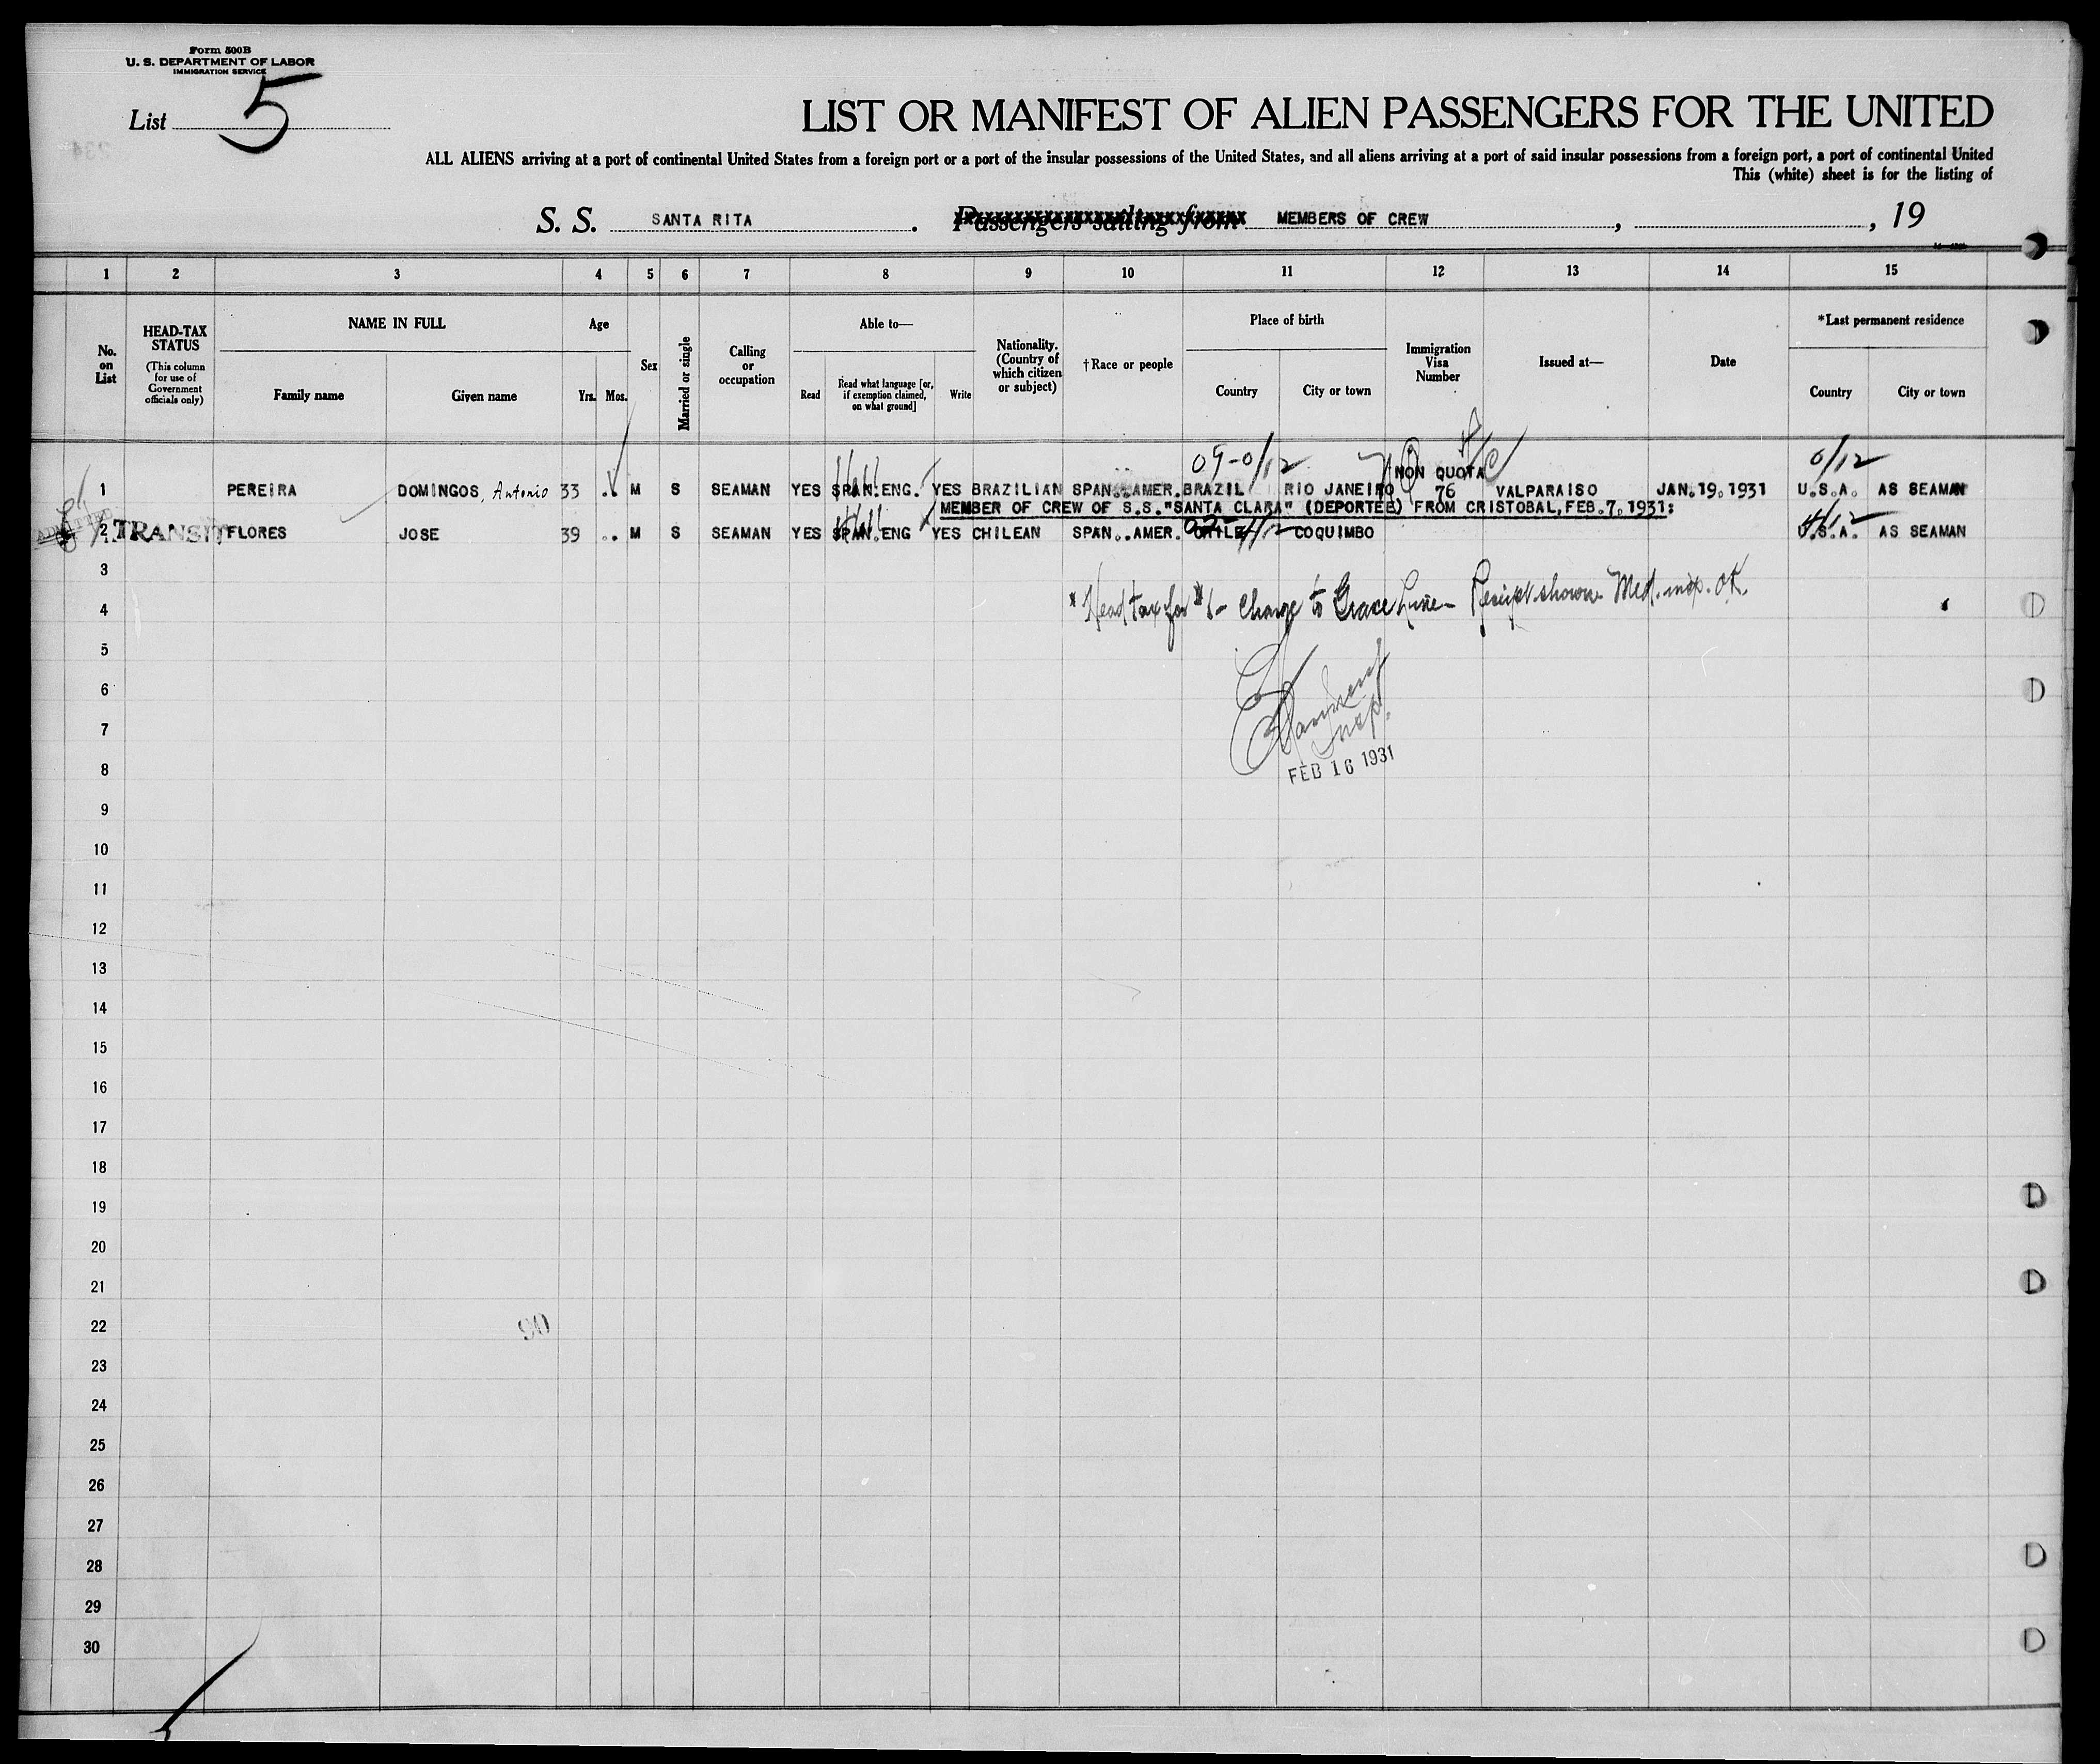 Form 500B
U. S. DEPARTMENT OF LABOR
IMMIGRATION SERVICE
List 5
LIST OR MANIFEST OF ALIEN PASSENGERS FOR THE UNITED
ALL ALIENS arriving at a port of continental United States from a foreign port or a port of the insular possessions of the United States, and all aliens arriving at a port of said insular possessions from a foreign port, a port of continental United
This (white) sheet is for the listing of
S. S. SANTA RITA . Passengers sailing from MEMBERS OF CREW , , 19
1 2 3 4 5 6 7 8 9 10 11 12 13 14 15
No. on List
HEAD-TAX STATUS
(This column for use of Government officials only)
NAME IN FULL
Family name Given name
Age
Yrs. Mos.
Sex
Married or single
Calling or occupation
Able to—
Read Read what language [or, if exemption claimed, on what ground] Write
Nationality. (Country of which citizen or subject)
†Race or people
Place of birth
Country City or town
Immigration Visa Number
Issued at—
Date
*Last permanent residence
Country City or town
09-0/12 0/12
NON QUOTA
1 PEREIRA DOMINGOS, Antonio 33 .. M S SEAMAN YES SPAN.ENG. YES BRAZILIAN SPAN..AMER. BRAZIL RIO JANEIRO 76 VALPARAISO JAN.19.1931 U.S.A. AS SEAMAN
MEMBER OF CREW OF S.S."SANTA CLARA" (DEPORTEE) FROM CRISTOBAL,FEB.7.1931:
2 TRANSIT FLORES JOSE 39 .. M S SEAMAN YES SPAN.ENG YES CHILEAN SPAN..AMER. CHILE COQUIMBO U.S.A. AS SEAMAN
3
* Head tax for #1 - Charge to Grace Line - Receipt shown. Med. insp. OK.
4
5
6
Insp.
7
FEB 16 1931
8
9
10
11
12
13
14
15
16
17
18
19
20
21
22
23
24
25
26
27
28
29
30